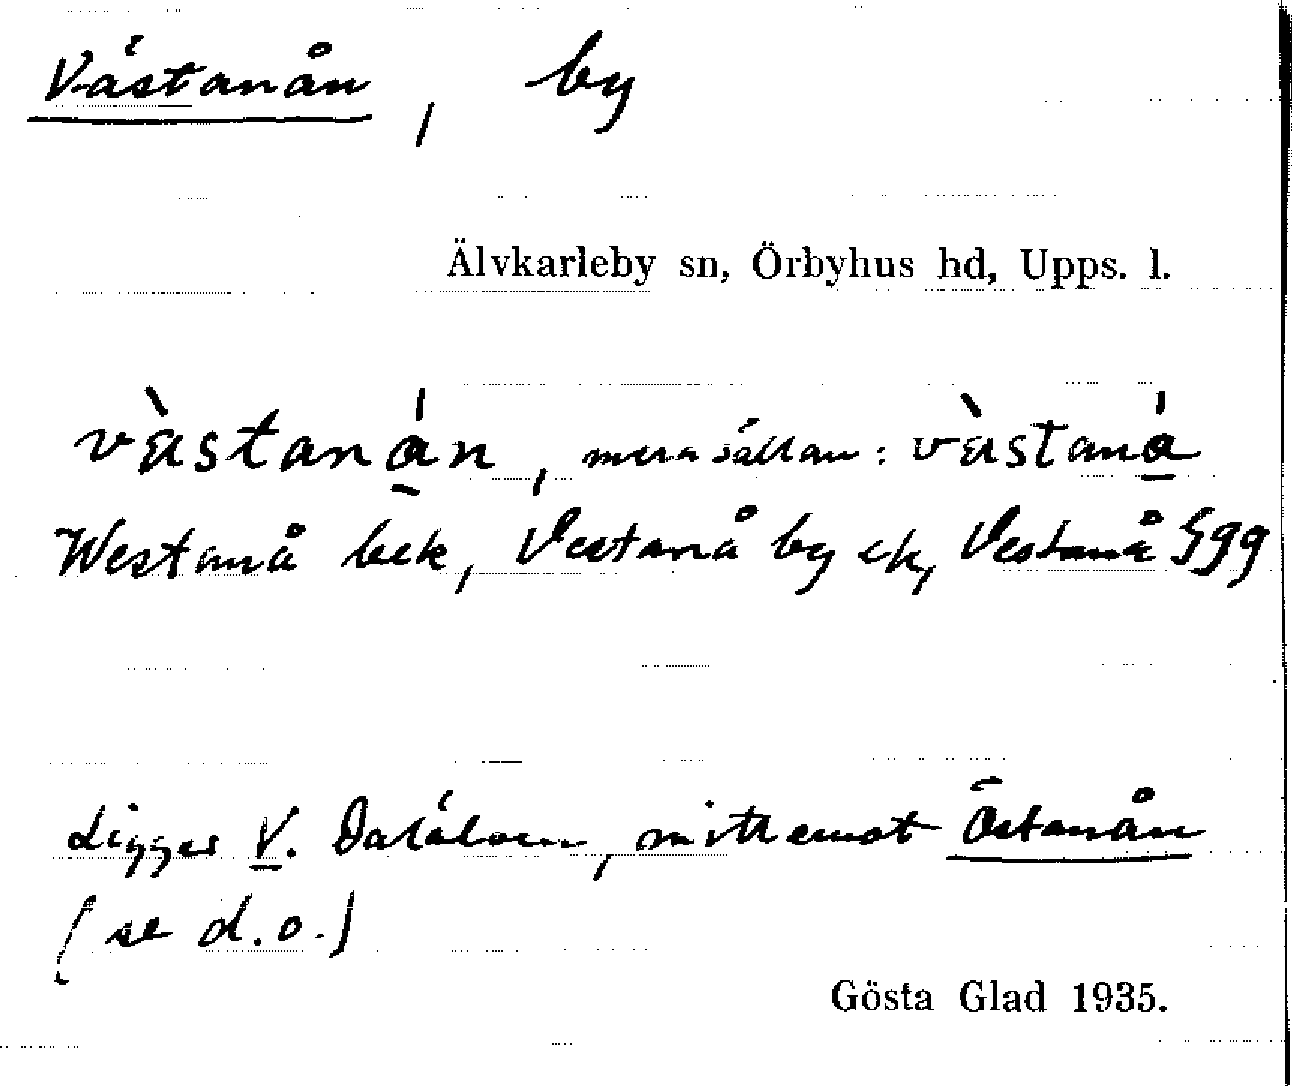 Västanån, by
Älvkarleby sn, Örbyhus hd, Upps. l.
vä̀staná̱n, mera sällan: vä̀staná̱
Westanå bek, Vestanå by ek, Vestanå Sgg
Ligger V. Dalälven, mitt emot Östanån
(se d.o.)
Gösta Glad 1935.